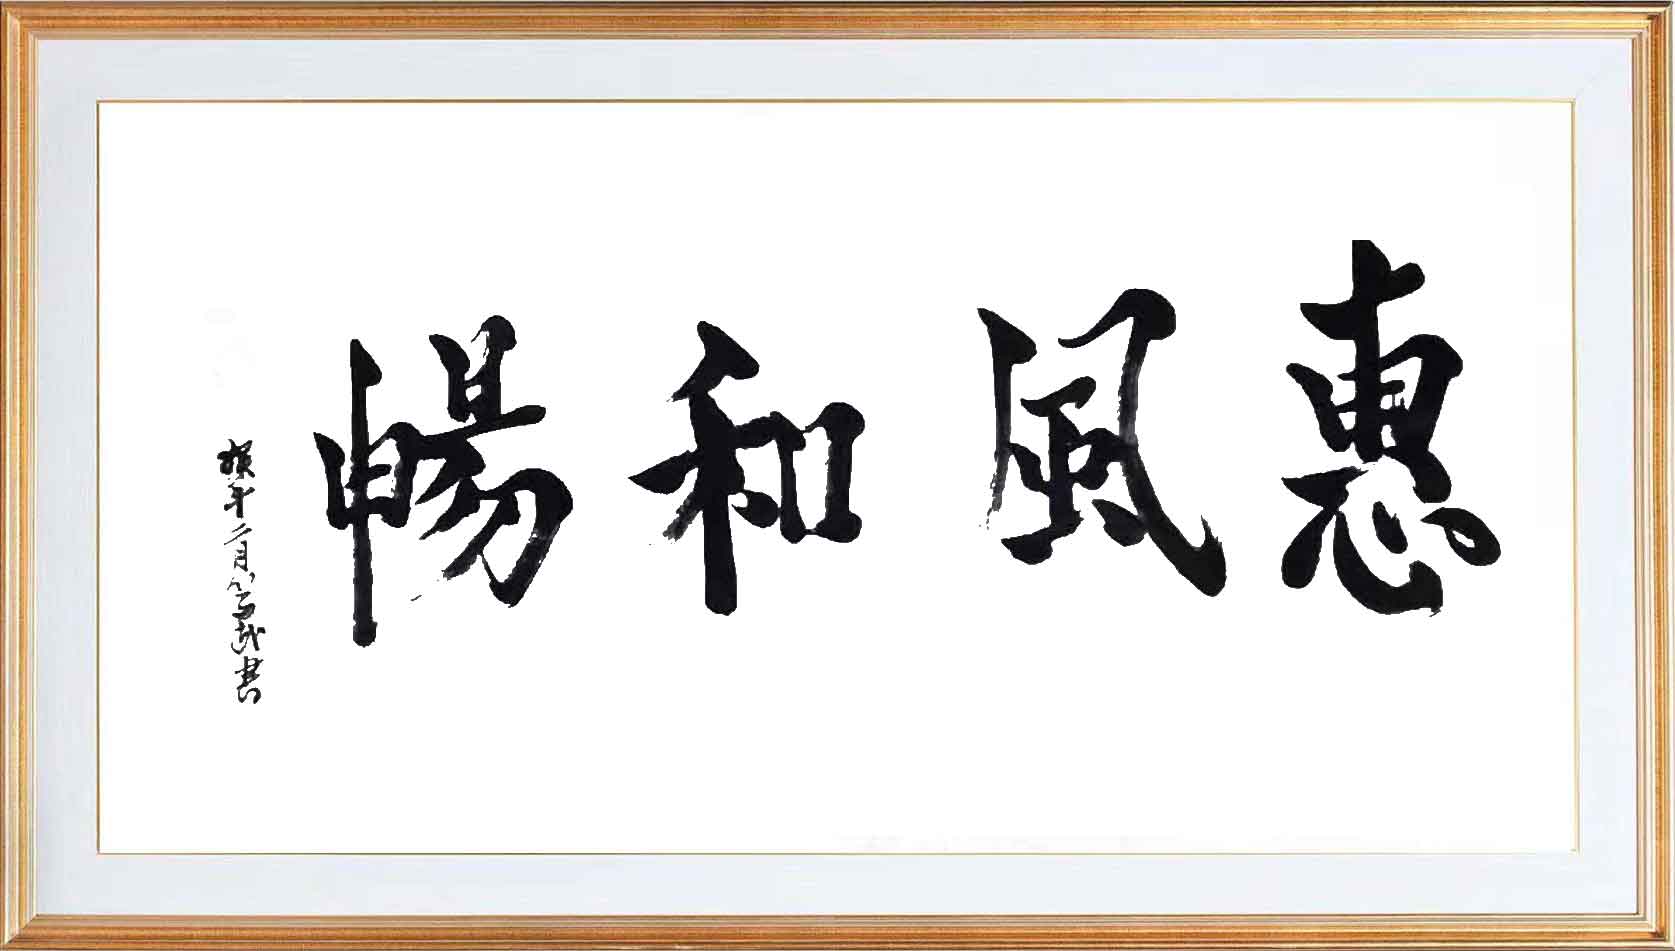 惠風和暢
年二月書